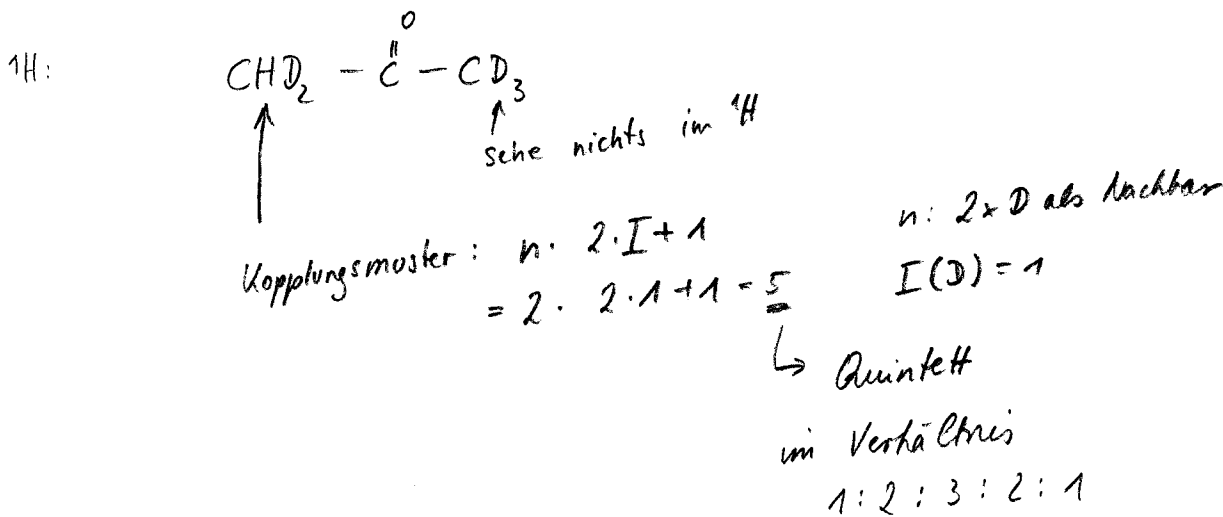 ¹H:
O
CHD₂ – C – CD₃
sehe nichts im ¹H
Kopplungsmuster: n · 2 · I + 1
= 2 · 2 · 1 + 1 = 5
n: 2x D als Nachbar
I(D) = 1
↳ Quintett
im Verhältnis
1 : 2 : 3 : 2 : 1